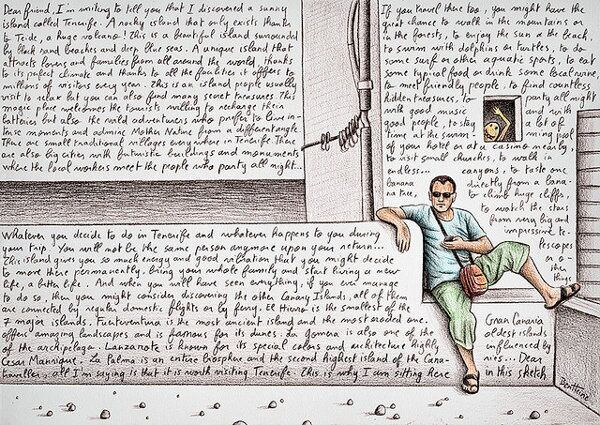 Dear friend, I'm writing to tell you that I discovered a sunny
island called Tenerife. A rocky island that only exists thanks
to Teide, a huge volcano! This is a beautiful island surrounded
by black sand beaches and deep blue seas. A unique island that
attracts lovers and families from all around the world thanks
to its perfect climate and thanks to all the facilities it offers to
millions of visitors every year. This is an island people usually
visit to relax but you can also find many secret treasures. This
magic place welcomes the tourists willing to recharge their
batteries but also the wild adventurers who prefer to live in-
tense moments and admire Mother Nature from a different angle.
There are small traditional villages everywhere in Tenerife. There
are also big cities with futuristic buildings and monuments
where the local workers meet the people who party all night...
If you travel there too, you might have the
great chance to walk in the mountains or
in the forests, to enjoy the sun at the beach,
to swim with dolphins or turtles, to do
some surf or other aquatic sports, to eat
some typical food or drink some local wine,
to meet friendly people, to find countless
hidden treasures, to party all night
with good music and with
good people, to stay a lot of
time at the swim- ming pool
of your hotel or at a casino nearby,
to visit small churches, to walk in
endless... canyons, to taste one
banana directly from a bana-
na tree, to climb huge cliffs,
to watch the stars
from very big and
impressive te-
lescopes
or o-
ther
things
Whatever you decide to do in Tenerife and whatever happens to you during
your trip. You will not be the same person anymore upon your return...
This island gives you so much energy and good vibration that you might decide
to move there permanently, bring your whole family and start living a new
life, a better life. And when you will have seen everything, if you ever manage
to do so, then you might consider discovering the other Canary Islands, all of them
are connected by regular domestic flights or by ferry. El Hierro is the smallest of the
7 major islands. Fuerteventura is the most ancient island and the most eroded one. Gran Canaria
offers amazing landscapes and is famous for its dunes. La Gomera is also one of the oldest islands
of the archipelago. Lanzarote is known for its special colors and architecture highly influenced by
Cesar Manrique. La Palma is an entire biosphere and the second highest island of the Cana- ries... Dear
traveller, all I'm saying is that it is worth visiting Tenerife. This is why I am sitting here in this sketch